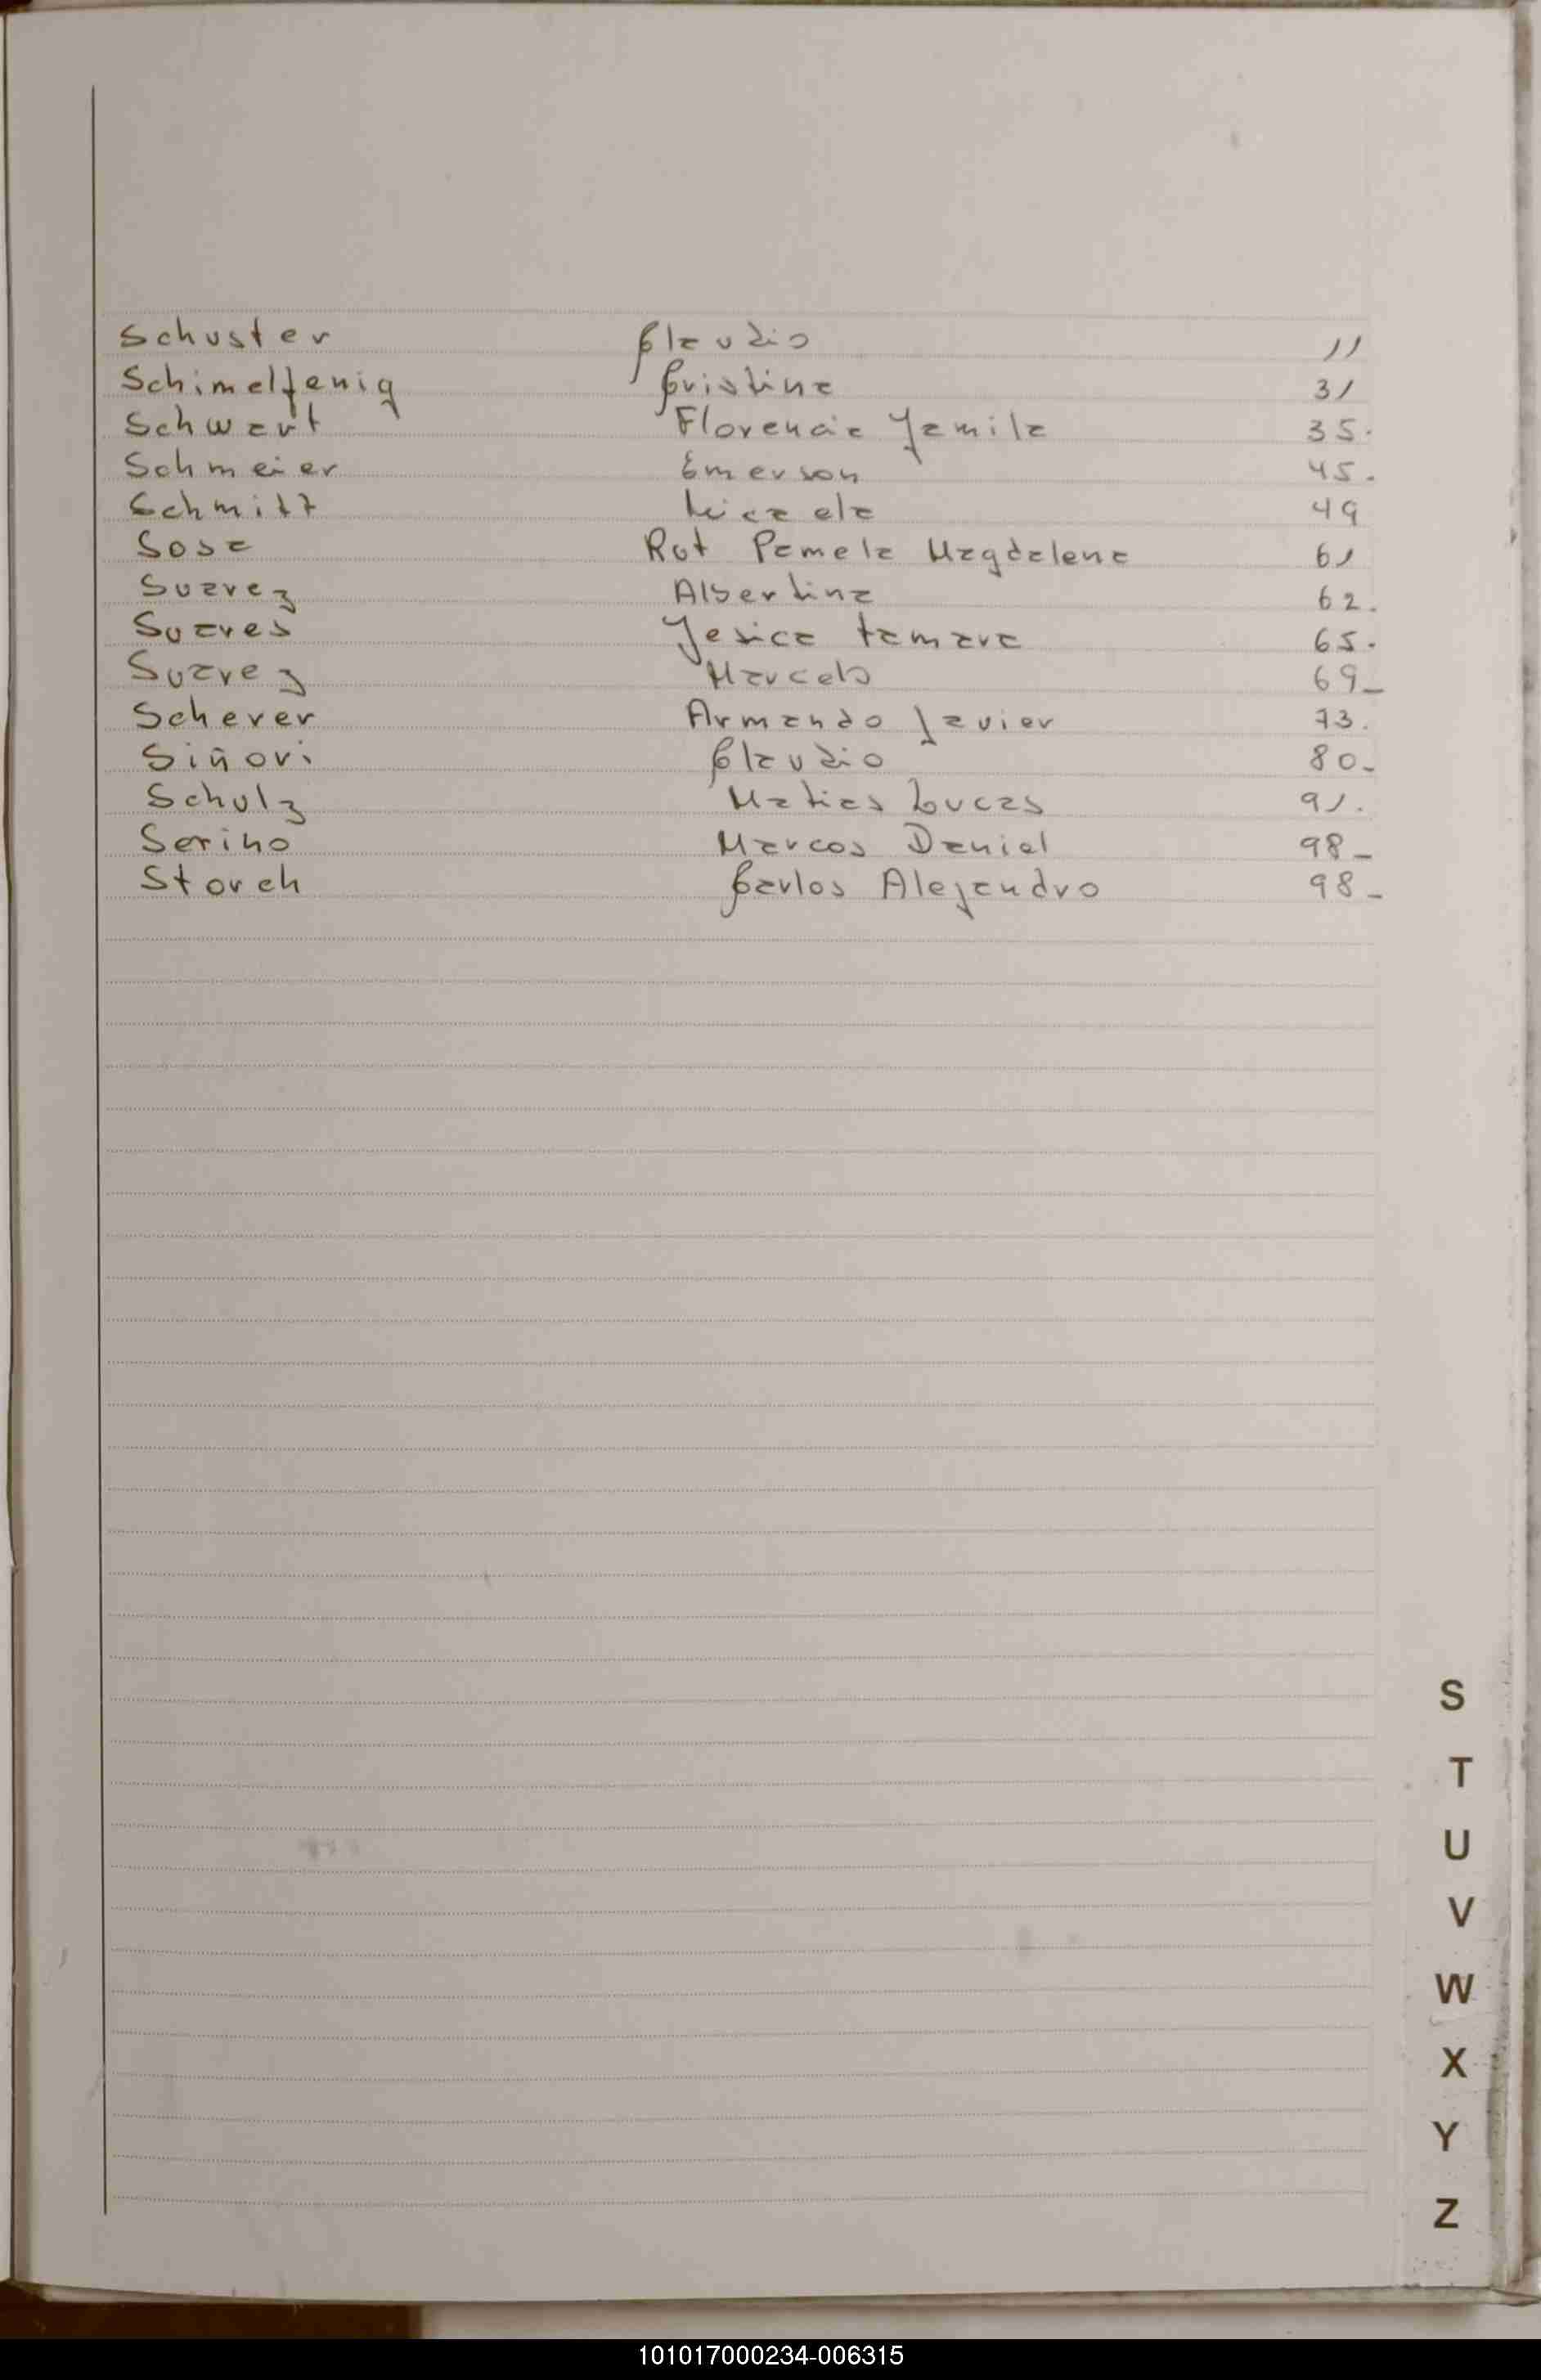 Schuster Claudio 11
Schimelfenig Cristina 31
Schwart Florencia Yamila 35.
Schmeier Emerson 45.
Schmitt Micaela 49
Sosa Rut Pamela Magdalena 61
Suarez Albertina 62.
Suares Yesica tamara 65.
Suarez Marcelo 69_
Scherer Armando Javier 73.
Siñori Claudio 80-
Schulz Matias Lucas 91.
Serino Marcos Daniel 98-
Storch Carlos Alejandro 98-
S
T
U
V
W
X
Y
Z
101017000234-006315